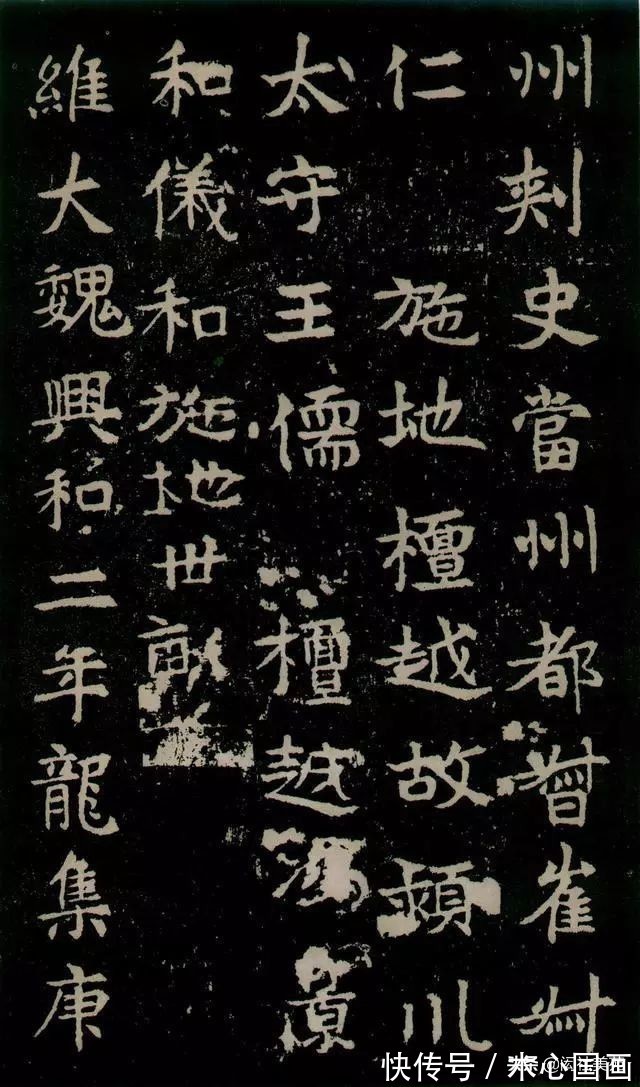 州刾史當州都督崔叔
仁 施地檀越故潁川
太守王儒 檀越原
和儀和施地世
維大魏興和二年龍集庚
快传号 / 心国画